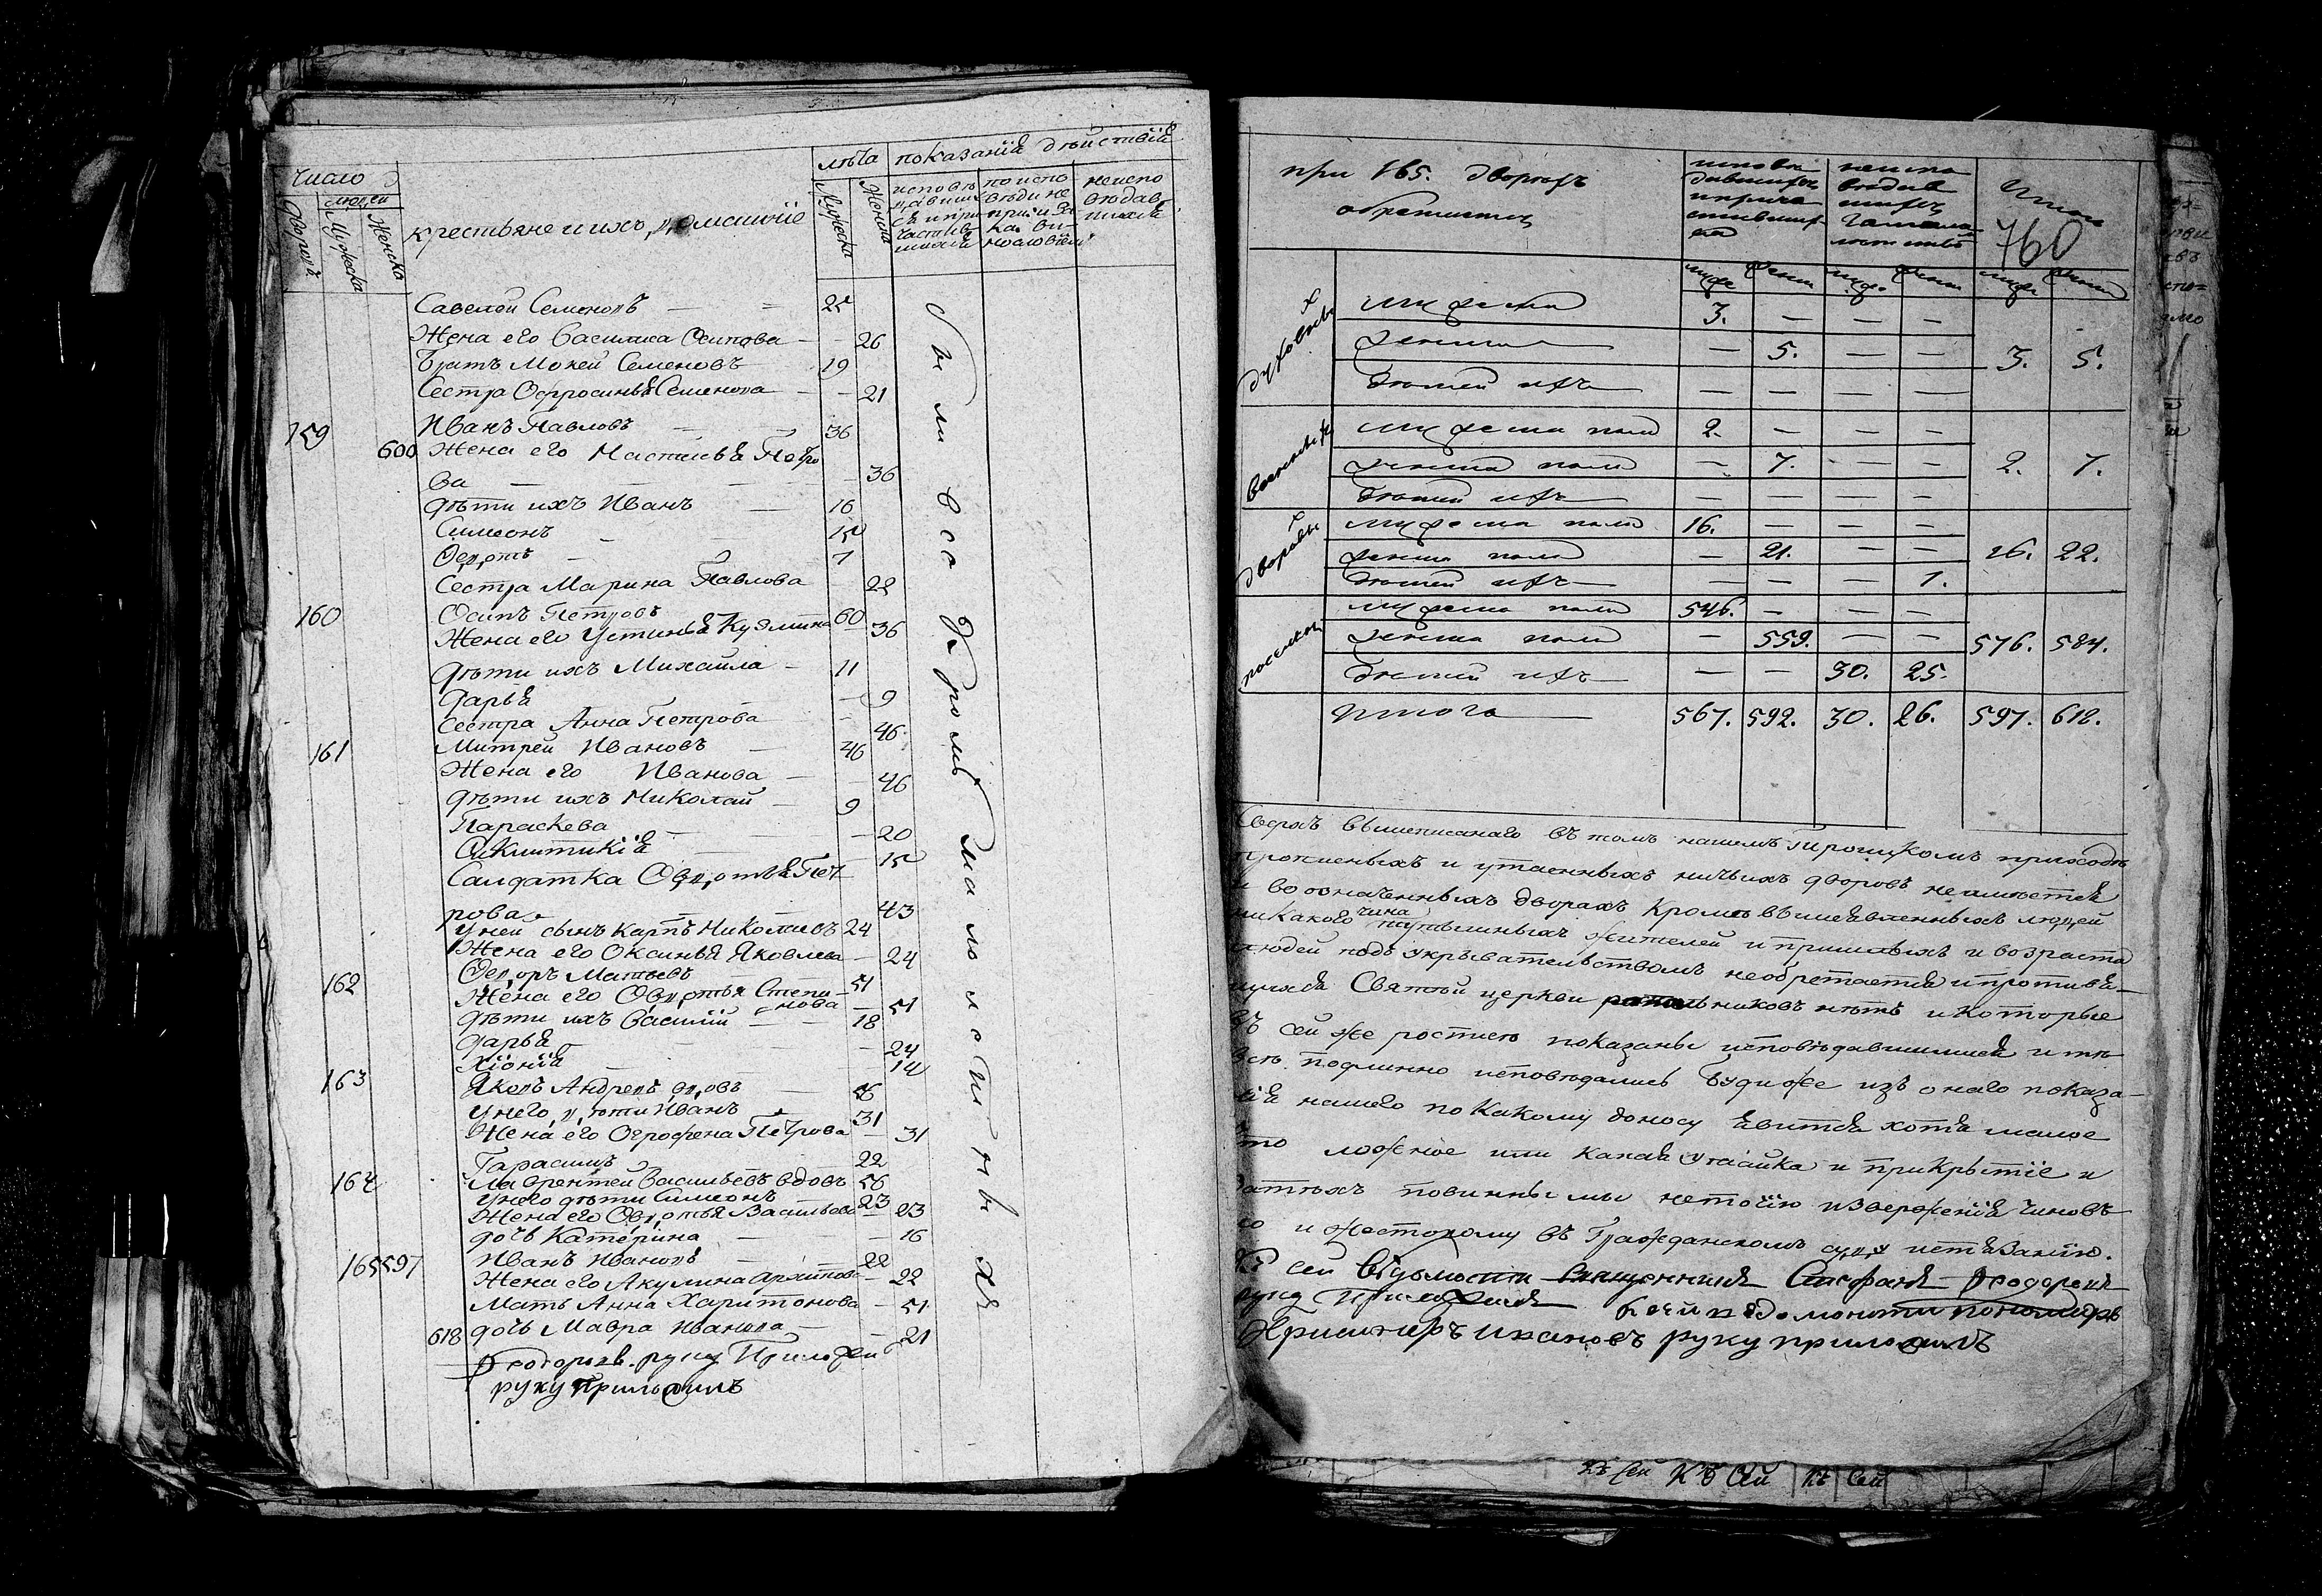 число
людей
дворовъ
Мужеска
Женска
крестьяне и ихъ домашніе
лѣта
Мужеска
Женска
показанія дѣйствій
исповѣ
давших
ся и при
частив
шихся
по испо
вѣди не
прича
ка
мословіем
неиспо
вѣдав
шихся
Савелей Семеновъ — 25
Жена его Василиса Осипова — 26
Братъ Мокей Семеновъ 19
Сестра Офросинья Семенова — 21
159 Иванъ Павловъ — 36
600 Жена его Настасья Петро
ва — 36
дѣти ихъ Иванъ — 16
Симеонъ — 15
Федотъ — 7
Сестра Марина Павлова 22
160 Осипъ Петровъ 60
Жена его Устинья Кузмина 36
дѣти ихъ Михайла — 11
дарья — 9
Сестра Анна Петрова 46
161 Митрей Ивановъ — 46
Жена его Иванова — 46
дѣти ихъ Николай — 9
Параскева — 20
— 15
Салдатка Овдотья Пет
рова — 43
у ней сынъ Карпъ Николаевъ 24
Жена его Оксинья Яковлева — 24
162 Федоръ Матвевъ — 51
Жена его Овдотья Степа
нова — 51
дѣти ихъ Василій — 18
дарья — 24
Хіонія — 14
163 Яковъ Андревъ вдовъ — 56
у него дѣти Иванъ 31
Жена его Огрофена Петрова — 31
Гарасимъ — 22
164 Лаврентей Васильевъ вдовъ 56
у него дѣти Симеонъ 23
Жена его Овдотья Васильева — 23
дочь Катерина — 16
165 597 Иванъ Ивановъ — 22
Жена его Акулина Архипова — 22
Мать Анна Харитонова — 51
618 дочь Мавра Иванова — 21
были все окромѣ малолетныхъ
Феодоровъ руку Приложи
руку Приложилъ
при 165. дворахъ
обретается
исповѣ
давшихъ
и прича
стивших
ся
неиспо
вѣдав
шихъ
за мало
лѣтствѣ
Итого
760
муже жена муже жена муже жена
духовныхъ
мужеска 3. — — —
женска — 5. — — 3. 5.
дѣтей ихъ — — — —
военныхъ
мужеска полу 2. — — —
женска полу — 7. — — 2. 7.
дѣтей ихъ — — — —
дворовыхъ
мужеска полу 16. — — —
женска полу — 21. — — 16. 22.
дѣтей ихъ — — — 1.
поселянъ
мужеска полу 546. — — —
женска полу — 559. — — 576. 584.
дѣтей ихъ — — 30. 25.
Итого 567. 592. 30. 26. 597. 618.
Сверхъ вышеписанаго въ томъ нашемъ Троицкомъ приходѣ
и утаенныхъ ничьихъ дворовъ неимѣется
и во означенныхъ дворахъ кромѣ вышеявленныхъ людей
никакого чина жителей и пришлыхъ и возраста
людей подъ укрывательствомъ необретается и противя
щихся Святѣй церкви раскольниковъ нѣтъ и которые
въ сей же росписи показаны исповѣдавшимися и тѣ
всѣ подлинно исповѣдались Буди же изъ онаго показа
нія нашего по какому доносу явится хотя малое
что ложное или какая утайка и прикрытіе и
затѣхъ повинны мы неточію изверженія чиновъ
но и жестокому въ Гражданскомъ судѣ истязанію.
Къ сей вѣдомости Священникъ Стефанъ Феодоровъ
руку Приложилъ к сей ведомости пономарь
Ивановъ руку приложилъ
Къ Сей Къ Сей Къ Сей